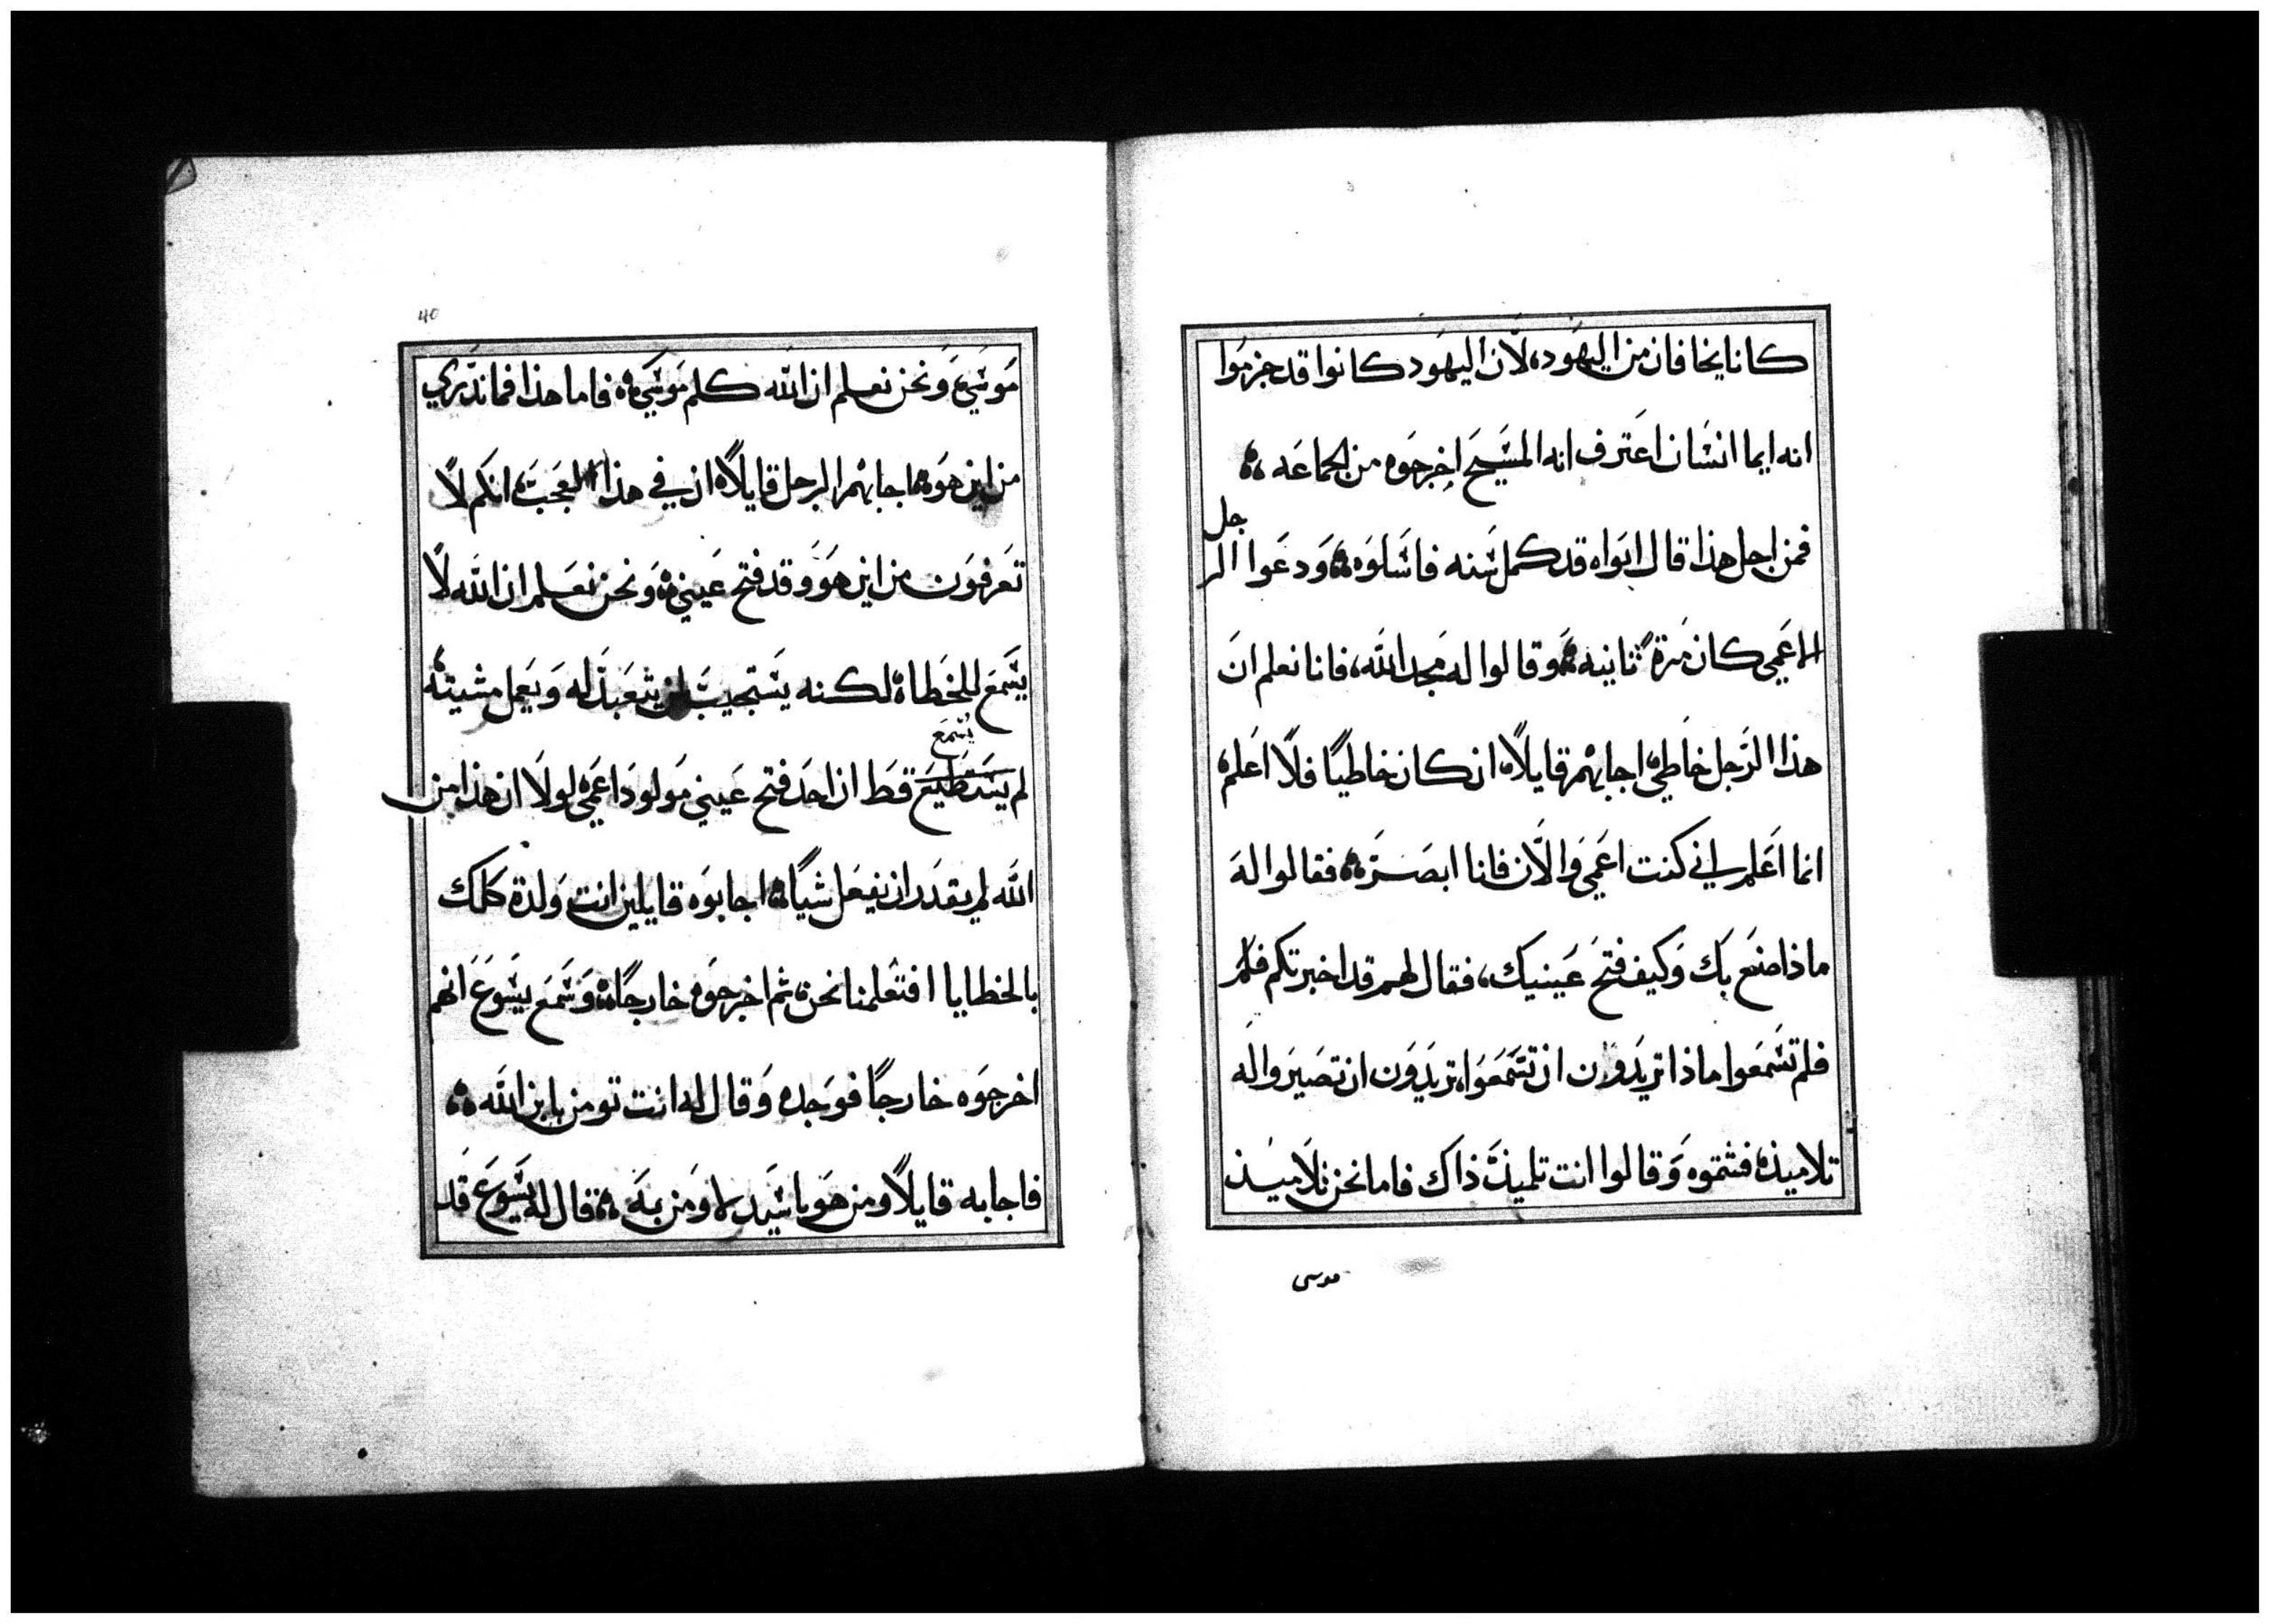 كانا يخافان من اليهود، لان اليهود كانوا قد جزموا
انه ايما انسان اعترف انه المسيح اخرجوه من الجماعه ؞
جل
فمن اجل هذا قال ابواه قد كمل سنه فاسلوه ؞ ودعوا الر
الاعمي كان مرة ثانيه ؞ وقالوا له مجد الله، فانا نعلم ان
هذا الرجل خاطي، اجابهم قايلا، ان كان خاطيًا فلا اعلم،
انما اعلم اني كنت اعمي والان فانا ابصر ؞ فقالوا له
ماذا صنع بك وكيف فتح عينيك، فقال لهم قد اخبرتكم فلم
فلم تسمعوا ماذا تريدون ان تسمعوا، تريدون ان تصيروا له
تلاميذ، فشتموه وقالوا انت تلميذ ذاك فاما نحن تلاميذ
موسى
40
موسي، ونحن نعلم ان الله كلم موسي ؞ فاما هذا فما ندري
من اين هو ؞ اجابهم الرجل قايلا، ان في هذا العجب، انكم لا
تعرفون من اين هو وقد فتح عيني ؞ ونحن نعلم ان الله لا
يسمع للخطاة لكنه يستجيب لمن يتعبد له ويعمل مشيته
يسمع
لم يستطيع قط ان احد فتح عيني مولود اعمي، لولا ان هذا من
الله لم يقدر ان يفعل شيًا ؞ اجابوه قايلين انت ولدة كلك
بالخطايا افتعلمنا نحن، ثم اخرجوه خارجًا ؞ وسمع يسوع انهم
اخرجوه خارجًا فوجده وقال له انت تومن بابن الله ؞
فاجابه قايلا ومن هو يا سيد لاومن به ؞ قال له يسوع قد